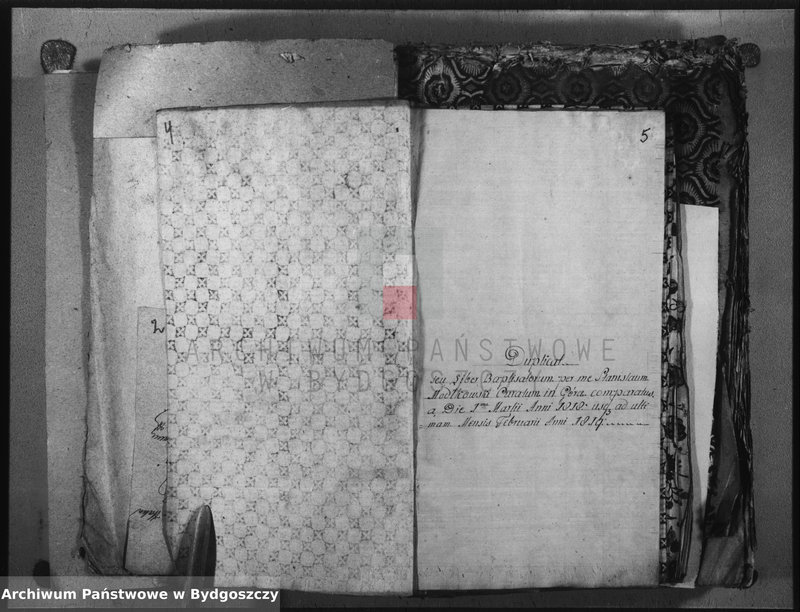 4
5
2
ARCHIWUM PAŃSTWOWE
W BYDGOSZCZY
Duplicat
seu Liber Baptisatorum per me Stanislaum
Modlkowski Curatum in Góra comparatus
a Die 1ma Martii Anni 1818 usq ad ulti
mam Mensis Februarii Anni 1819
Archiwum Państwowe w Bydgoszczy